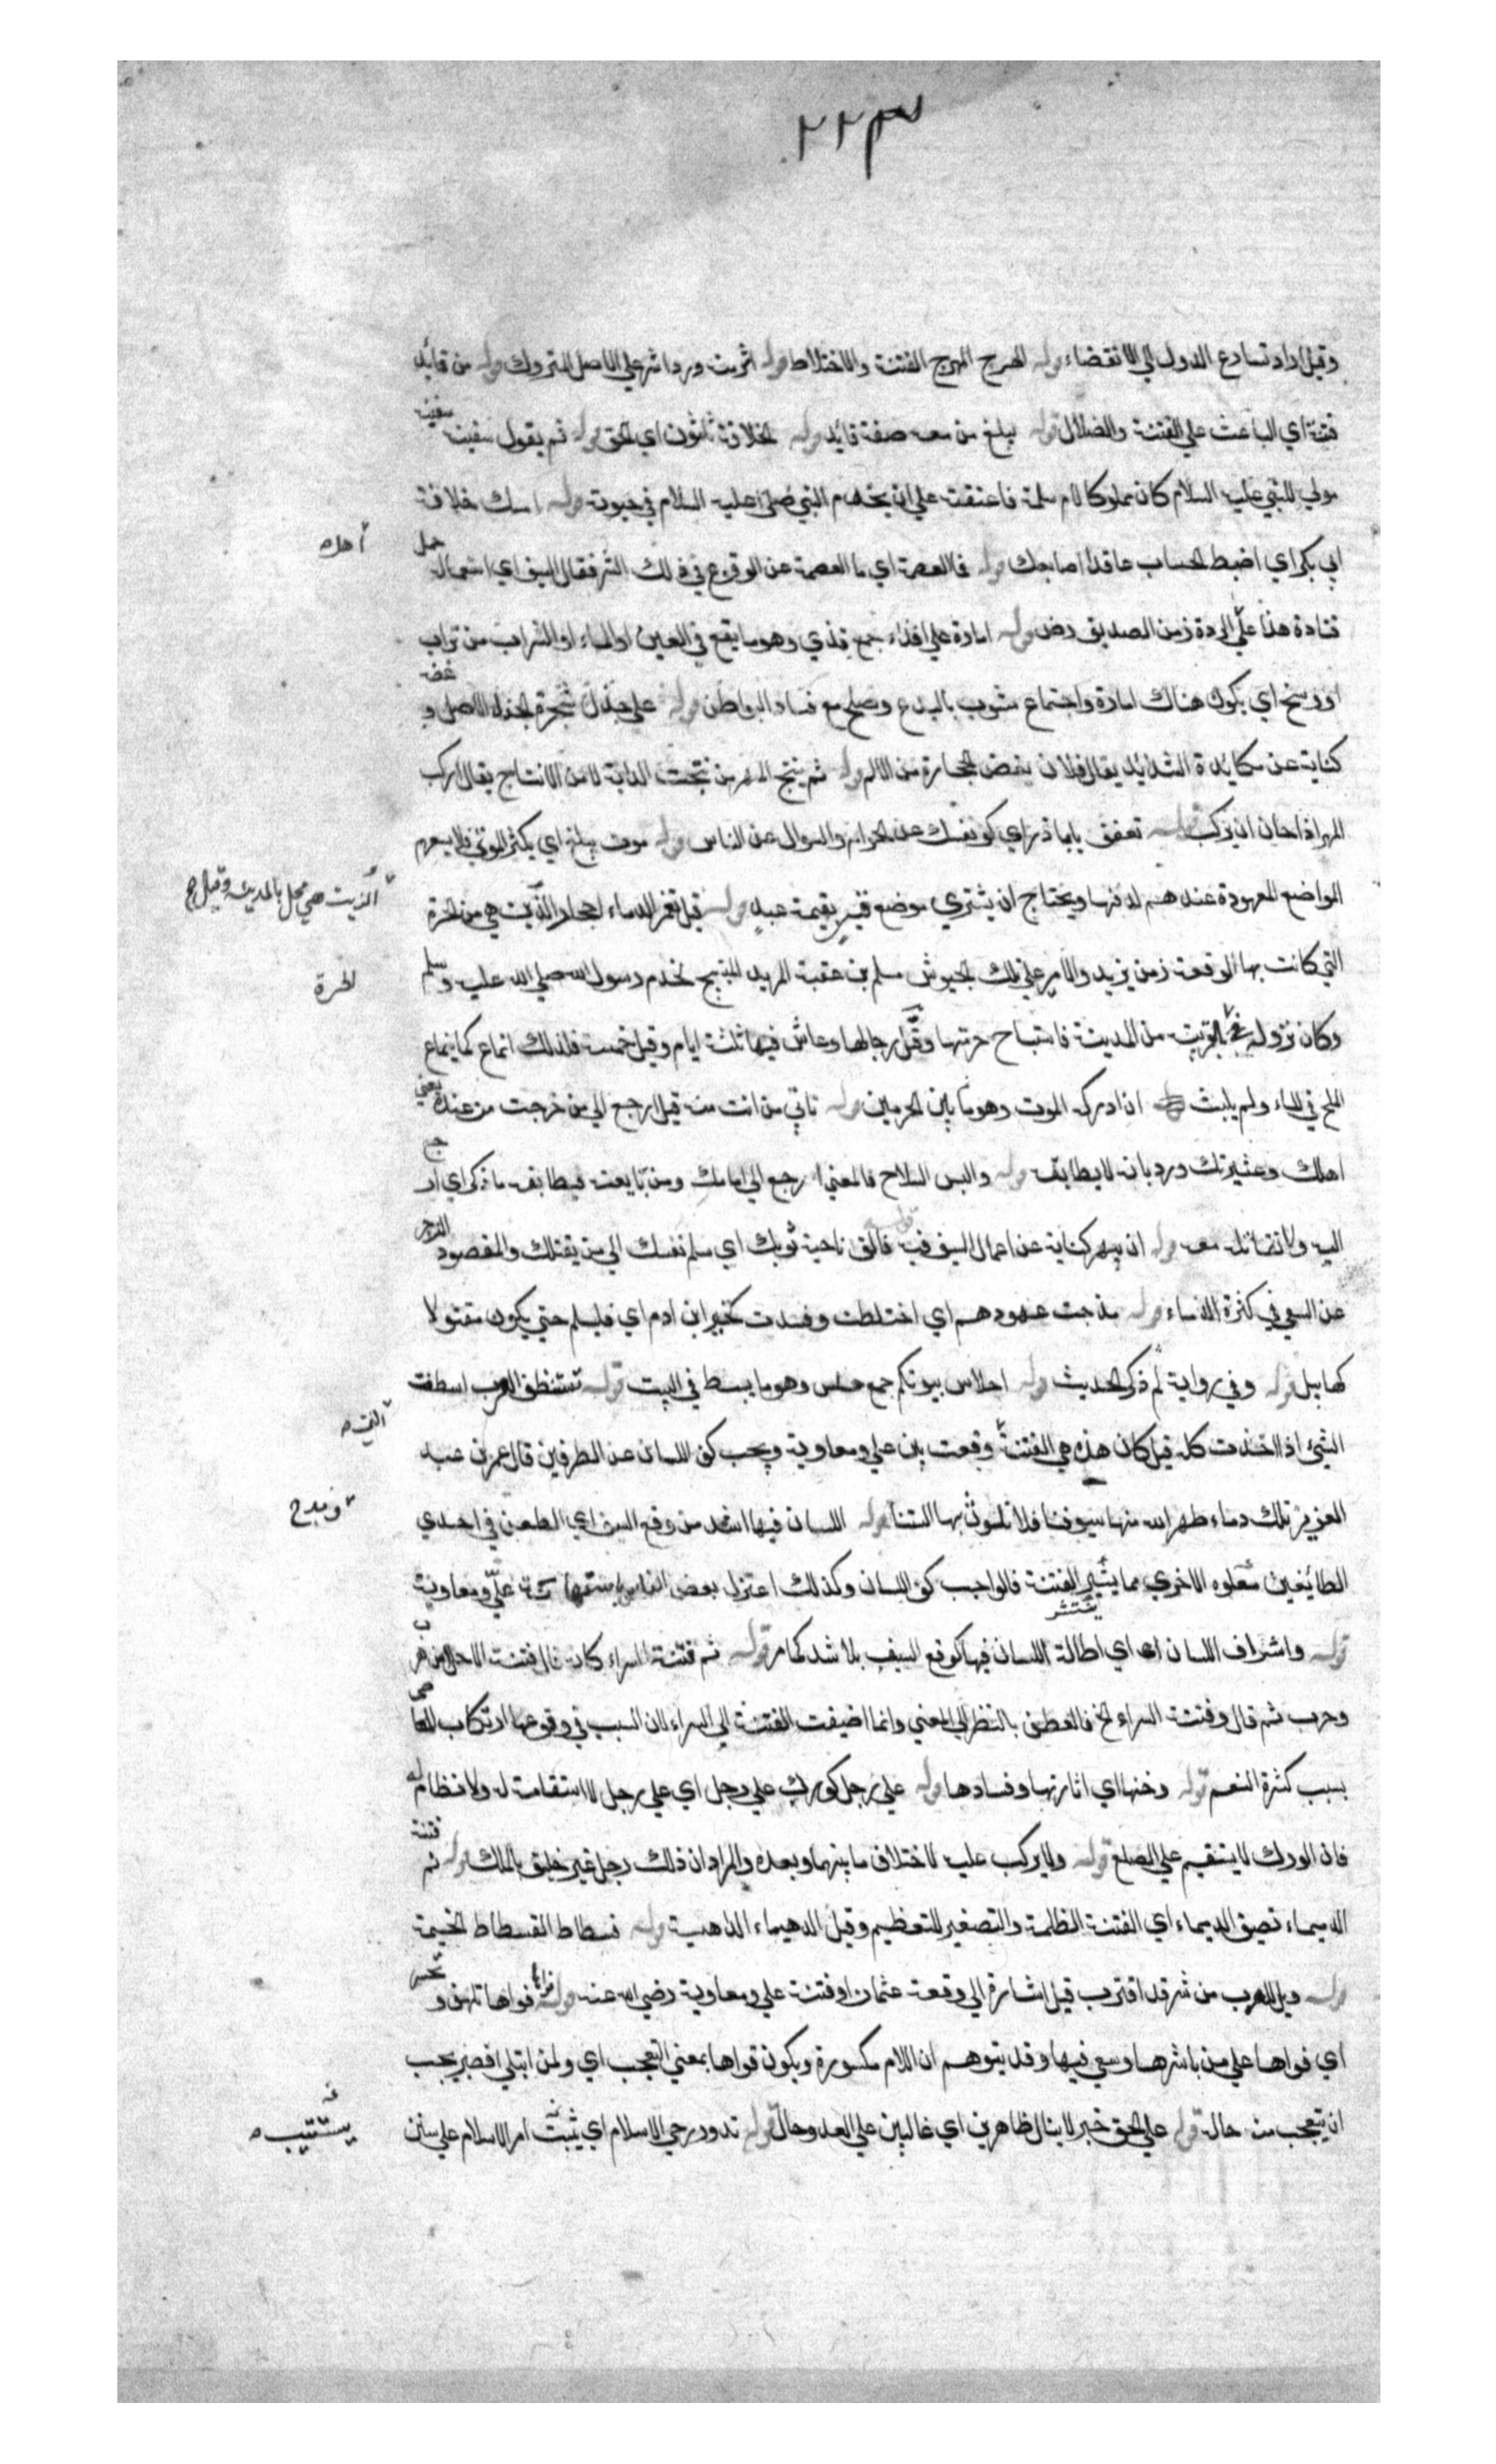 ٢٢٣
وقيل اراد تسارع الدول الي الانقضاء قوله الهرج الهرج الفتنة والاختلاط قوله اشر منه ورد اشر علي الاصل المتروك قوله من قائد
فتنة اي الباعث علي الفتنة والضلال قوله يبلغ من معه صفة قايد قوله الخلافة ثلثون اي الحق قوله ثم يقول سفينة
مولي للنبي عليه السلام كان مملوكا لام سلمة فاعتقته علي ان يخدم النبي صلي عليه السلام في حيوته قوله امسك خلافة
ابي بكر اي اضبط الحساب عاقدا اصابعك قوله فما العصمة اي ما العصمة عن الوقوع في ذلك الشر فقال السيف اي استعمال حمل
احله
قتادة هذا علي الردة زمن الصديق رض قوله امارة علي اقذاء جمع قذي وهو ما يقع في العين او الماء او الشراب من تراب
او وسخ اي يكون هناك امارة واجتماع مشوب بالبدع وصلح مع فساد البواطن قوله علي جذل شجرة الجذل الاصل و
كناية عن مكايدة الشدايد يقال فلان يعض الحجارة من الالم قوله ثم ينتج المهر من نتجت الدابة لا من الانتاج يقال اركب
المهر اذا حان ان يركب قوله تعفف يا ابا ذر اي كف نفسك عن الحرام والسوال عن الناس قوله موت يبلغ اي يكثر الموتي فلا يسعهم
المواضع المعهودة عندهم لدفنها ويحتاج ان يشتري موضع قبر بقيمة عبد قوله قيل تغمر الدماء احجار الزيت هي من الحرة
الزيت هي محل بالمدينة وقيل
التي كانت بها الوقعة زمن يزيد والامير علي تلك الجيوش مسلم بن عقبة المريد المبيح لحدم رسول الله صلي الله عليه وسلم
الحرة
وكان نزوله بالقرية من المدينة فاستباح حرمتها وقتل رجالها وعاش فيها ثلثة ايام وقيل خمسة فلذلك انماع كما ينماع
الملح في الماء ولم يلبث ان ادركه الموت وهو ما بين الحرمين قوله تاتي من انت منه قيل ارجع الي من خرجت من عنده يعني
اهلك وعشيرتك ورد بانه لا يطابق قوله والبس السلاح فالمعني ارجع الي امامك ومن بايعته فيطابق ما ذكر اي ارجع
اليه ولا تقاتل معه قوله ان يبهر كناية عن اعمال السيف فيه فالق ناحية ثوبك اي سلم نفسك الي من يقتلك والمقصود الزجر
عن السعي في كثرة الدماء قوله مرجت عهودهم اي اختلطت وفسدت كخير ابن ادم اي فليسلم حتي يكون مقتولا
كهابيل قوله وفي رواية ثم ذكر الحديث قوله احلاس بيوتكم جمع حلس وهو ما يبسط في البيت قوله تستنظف العرب استنظفت
الشي اذا اخذت كله قيل كان هذه هي الفتنة وقعت بين علي ومعاوية ويجب كف اللسان عن الطرفين قال عمر بن عبد
العزيز تلك دماء طهر الله منها سيوفنا فلا نلوث بها السنتنا قوله اللسان فيها اشد من وقع السيف اي الطعن في احدي
الطائفين ومدح الاخري مما يثير الفتنة فالواجب كف اللسان وكذلك اعتزل بعض الناس علي ومعاوية
قوله واشراف اللسان اي اطالة اللسان فيها كوقع السيف بل اشد كما مر قوله ثم فتنة السراء كان قال فتنة الاحلاس هرب
وحرب ثم قال وفتنة السراء الخ فالعطف بالنظر الي المعني وانما اضيفت الفتنة الي السراء لان السبب في وقوعها ارتكاب المعاصي
بسبب كثرة النعم قوله دخنها اي اثارتها وفسادها قوله علي رجل كورك علي رجل اي علي رجل لا استقامة له ولا نظام
فان الورك لا يستقيم علي الضلع قوله ولا يركب عليه لاختلاف ما بينهما وبعده والمراد ان ذلك رجل غير خليق بالملك قوله ثم فتنة
الدهيماء تصغير الدهماء اي الفتنة المظلمة والتصغير للتعظيم وقيل الدهيماء الداهية قوله فسطاط الفسطاط الخيمة
قوله ويل للعرب من شر قد اقترب قيل اشارة الي وقعة عثمان او فتنة علي ومعاوية رضي الله عنه قوله فواها تلهف وتحسر
اي فواها علي من باشرها وسعي فيها وقد يتوهم ان اللام مكسورة ويكون فواها بمعني التعجب اي ولمن ابتلي فصبر يجب
ان يتعجب من حاله قوله علي الحق خبر لا يزال ظاهرين اي غالبين علي العدو حال قوله تدور رحي الاسلام اي يثبت امر الاسلام علي سنن
يستتيب